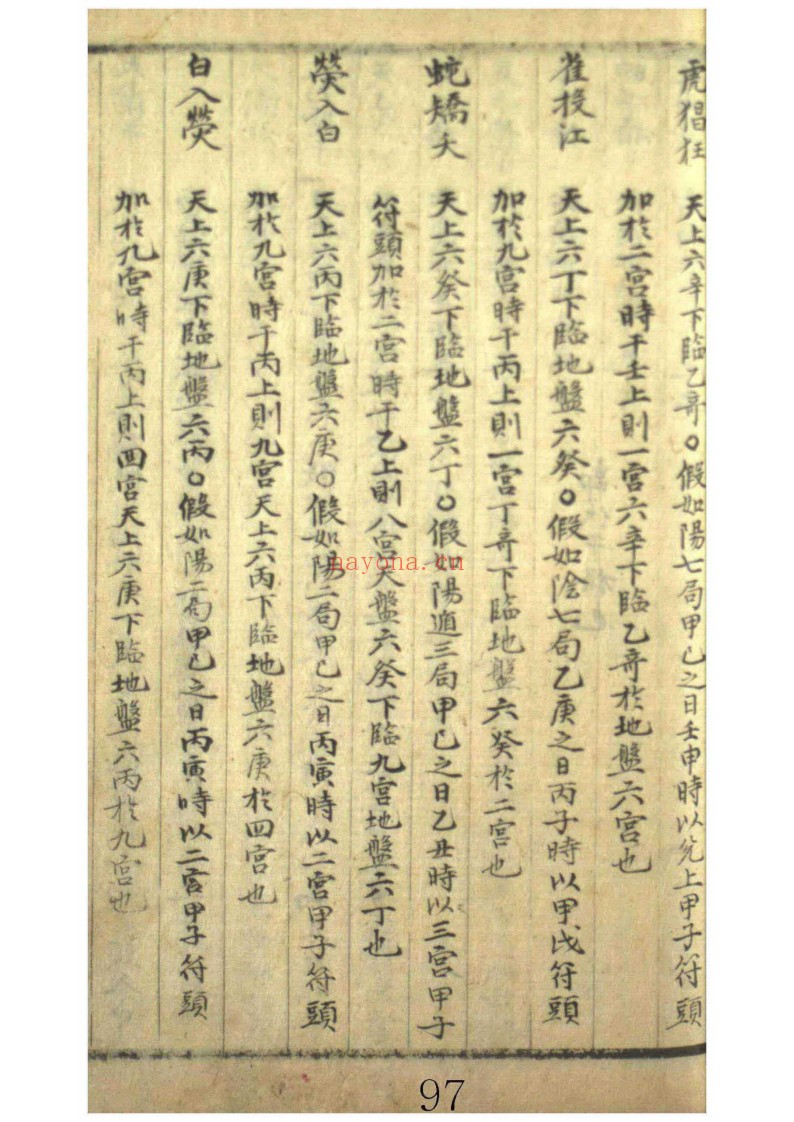 虎猖狂 天上六辛下臨乙奇○假如陽七局甲己之日壬申時以兌上甲子符頭
加於二宮時干壬上則一宮六辛下臨乙奇於地盤六宮也
雀投江 天上六丁下臨地盤六癸○假如陰七局乙庚之日丙子時以甲戌符頭
加於九宮時干丙上則一宮丁奇下臨地盤六癸於二宮也
蛇矯夭 天上六癸下臨地盤六丁○假如陽遁三局甲己之日乙丑時以三宮甲子
符頭加於二宮時干乙上則八宮天盤六癸下臨九宮地盤六丁也
熒入白 天上六丙下臨地盤六庚○假如陽二局甲己之日丙寅時以二宮甲子符頭
加於九宮時干丙上則九宮天上六丙下臨地盤六庚於四宮也
白入熒 天上六庚下臨地盤六丙○假如陽二局甲己之日丙寅時以二宮甲子符頭
加於九宮時干丙上則四宮天上六庚下臨地盤六丙於九宮也
nayona.cn
97